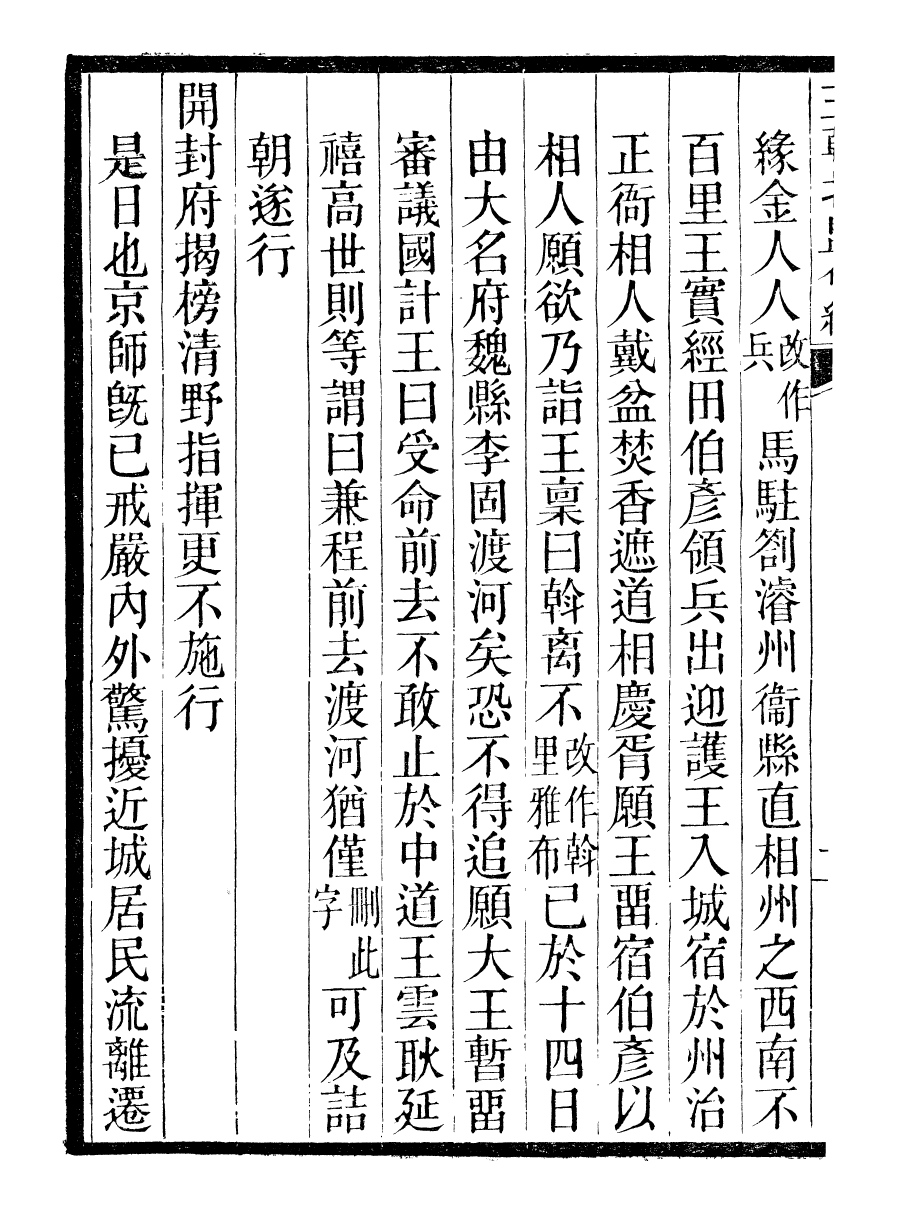 緣金人人改作兵馬駐劄濬州衞縣直相州之西南不
百里王實經田伯彥領兵出迎護王入城宿於州治
正衙相人戴盆焚香遮道相慶胥願王畱宿伯彥以
相人願欲乃詣王稟曰斡离不改作斡里雅布已於十四日
由大名府魏縣李固渡河矣恐不得追願大王暫畱
審議國計王曰受命前去不敢止於中道王雲耿延
禧高世則等謂曰兼程前去渡河猶僅刪此字可及詰
朝遂行
開封府揭榜清野指揮更不施行
是日也京師旣已戒嚴內外驚擾近城居民流離遷